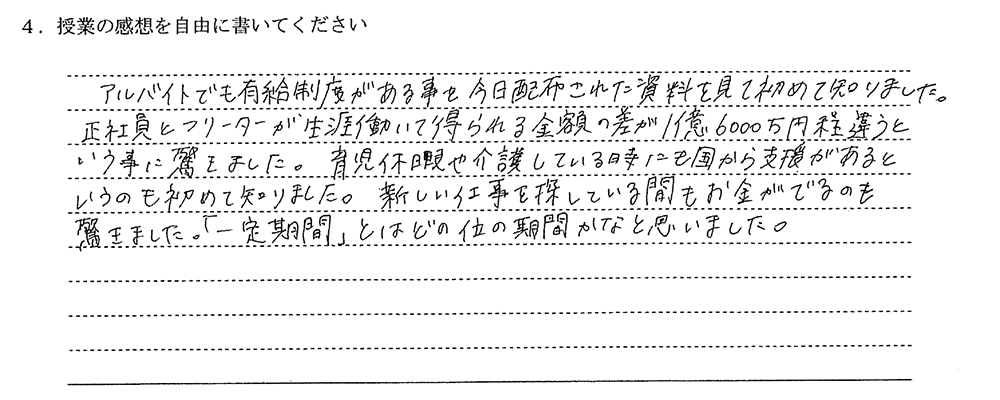 4．授業の感想を自由に書いてください
アルバイトでも有給制度がある事を今日配布された資料を見て初めて知りました。
正社員とフリーターが生涯働いて得られる金額の差が1億6000万円程違うと
いう事に驚きました。育児休暇や介護している時にも国から支援があると
いうのも初めて知りました。新しい仕事を探している間もお金がでるのも
驚きました。「一定期間」とはどの位の期間かなと思いました。